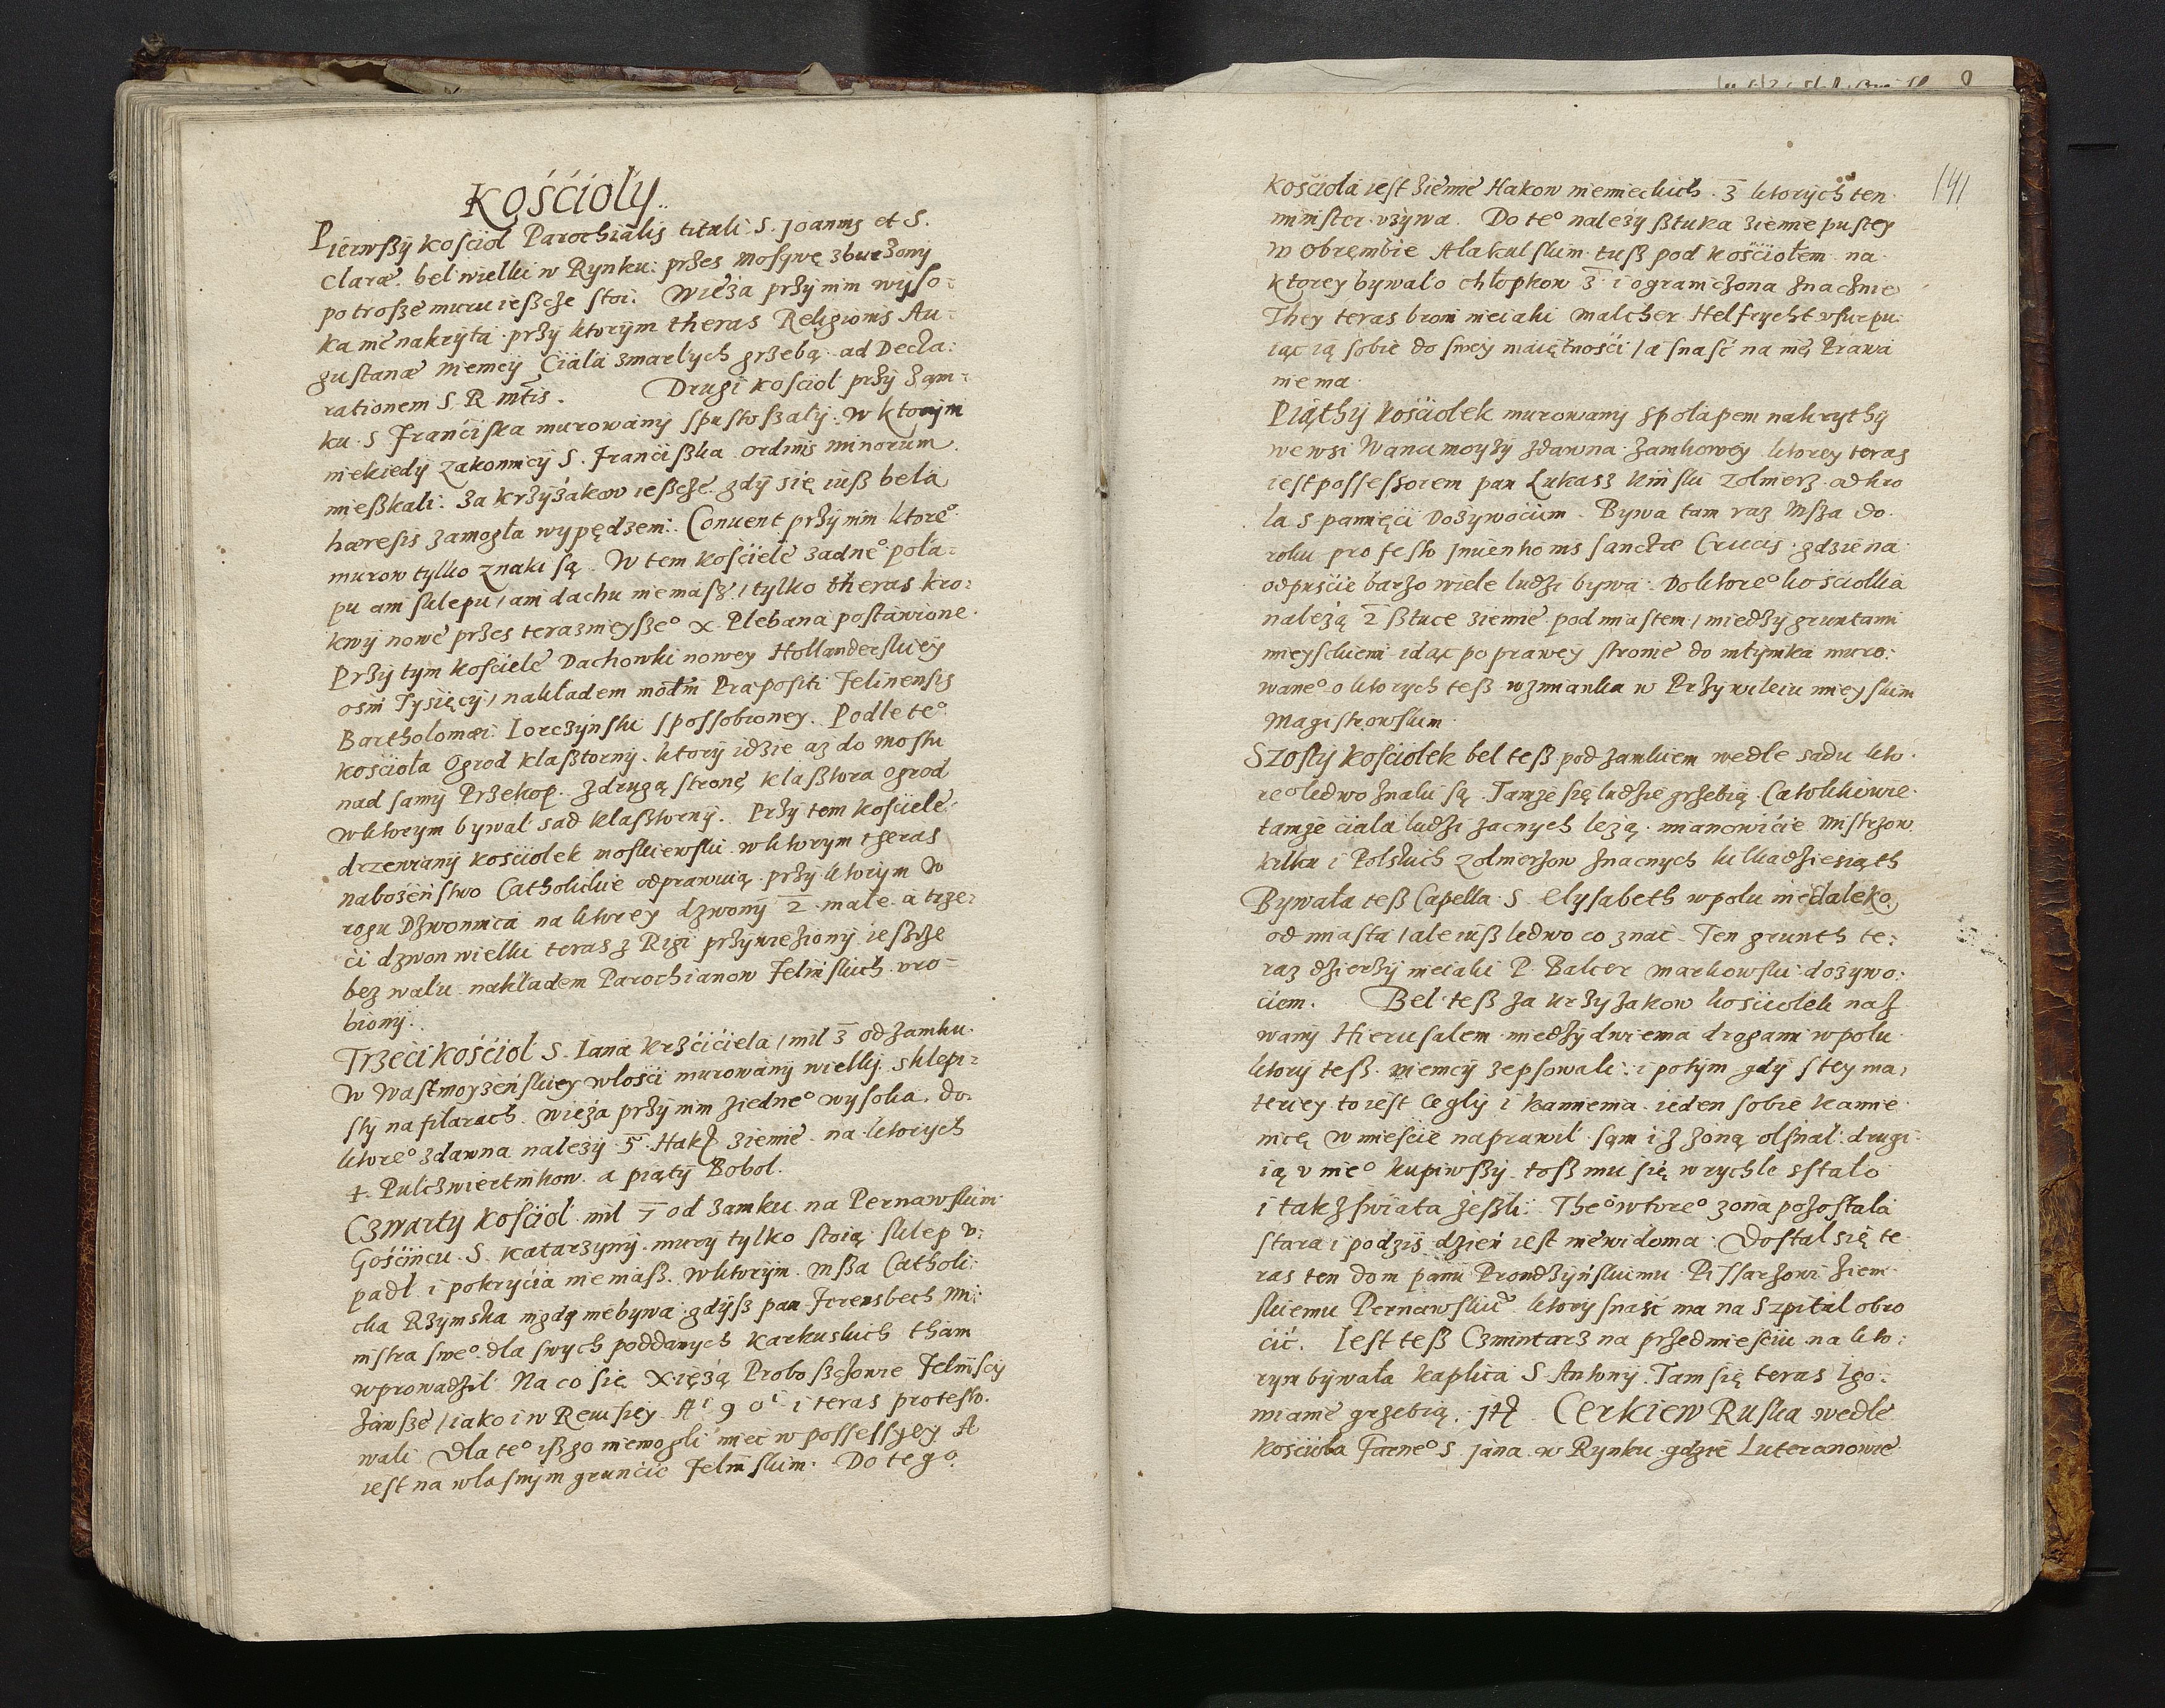 Kościoly.
Pierwßÿ kośćiol Parochialis tituli S. Joannis et S.
Claræ. bel wielki w Rynku: przes Mosqwę zburzonÿ
po trosze muru ießcze stoi. Wieża przÿ nim wÿso-
ka nienakrÿta. przÿ ktorÿm theras Religionis Au-
gustanæ Niemcÿ Ciała zmarlych grzebą ad Decla-
rationem S. R. mtis. Drugi kościol przÿ Zam-
ku. S Franćiska murowánÿ spustoßałÿ. w ktorÿm
niekiedÿ zakonnicÿ S. Francißka ordinis minorum
mießkali: za krzÿżakow ießcze. gdÿ się iuß bela
hæresis zamogła wypędzeni. Conuent przÿ nim ktoreo
murow tylko znaki są. W tem kośćiele żadneo poła-
pu ani sklepu / ani dachu niemasz / tylko theras kro-
kwÿ nowe przes terazneÿßeo X. Plebana postawione.
Przÿ tym kośćiele Dachowki nowey Hollanderskiey
ośm Tysięcÿ / nakładem Præpositi Felinensis
Bartholomæi: sposobioney. Podle teo
kośćioła Ogrod klaßtorny. ktorÿ idzie aż do mostu
nad samÿ Przekop. z drugą stronę klaßtora ogrod
w ktorym bywal sad klaßtornÿ. Przÿ tem kośćiele
drzewianÿ kosciolek moskiewski. w ktorym theras
nabożeństwo Catholickie odprawuią. przÿ ktorim w
rogu Dzwonnica na ktorey dzwonÿ 2. małe. a trze-
ci dzwon wielki teras z Rigi przÿwieziony ießcze
bez wału. nakładem Parochianow Felińskich vro-
bionÿ.
Trzeci kośćiol S. Iana Krzćićiela / mil 3 od zamku.
W Wastmoyzeńskiey włośći murowánÿ wielkÿ. sklepi-
stÿ na filarach. wieża przÿ nim z iedneo wysoka. do
ktoreo zdawna należÿ 5. Hak. ziemie. na ktorych
4. Pulczwiertnikow. a piątÿ Bobol.
Czwarty kośćiol. mil 7 od zamku na Pernawskim
Gośćińcu. S. Katarzynÿ. murÿ tylko stoią. sklep v-
padl. i pokrÿcia niemaß. w ktorÿm mßa Catholi-
cka Rzymska nigdÿ niebywa. gdÿß pan mi-
nistra sweo. dla swych poddanych Karkuskich tham
wprowadził. Na co się Xięża Proboszczowie Felińscy
zawsze / iako i w Reuisiey Ai 90i. i teras protesto-
wali. Dla teo ißgo niemogli miec w possessyey A
iest na własnym grunćie Felińskim. Do tego
141
kośćioła iest ziemie Hakow niemieckich. 3 ktorych ten
minister vżywa. Do teo należÿ ßtuka ziemie pustey
w obrembie Alakulskim. tuß pod kośćiołem na
ktorey bywało chłopkow 3 i ograniczona znacznie
They teras broni nieiaki Malcher Helfrycht vsurpu-
iąc ią sobie do swey maiętnośći / a snaść na nię Prawa
niema.
Piąthÿ Kośćiolek murowanÿ s połapem nakrythÿ
we wsi Wanamoyzÿ zdawna zamkowey. ktorey teraz
iest possessorem pan Lukasz Kiński zolnierz od kro
la S pamięci Dożywoćiem. Bywa tam raz Msza do
roku pro festo Inuentionis sanctæ Crucis. gdzie na
odpuśćie barzo wiele ludzi bywa. Do ktoreo kośćiolka
należą 2 ßtuce ziemie. pod miastem / miedzÿ gruntami
mieyskiemi idąc po prawey stronie do młÿnka muro-
waneo. o ktorych teß wzmianka w Przÿwileiu mieyskim
Magistrowskim.
Szosty kośćiolek bel teß. pod zamkiem wedle sadu kto-
reo ledwo znaki są. Tamże się ludzie grzebią. Catolikowie
tamże ciała ludzi zacnych leżą. mianowićie Mistrzow
kilku i Polskich zolnierzow znacnych kilkadziesiąth
Bywała teß Capella. S. Elysabeth w polu niedaleko
od miasta / ale iuß ledwo co znać. Ten grunth te-
raz dzierżÿ nieiaki P. Balcer Markowski dożywo-
ćiem. Bel teß za krzÿżakow kośćiolek naz
wanÿ Hierusalem. miedzÿ dwiema drogami w polu
ktorÿ teß. niemcÿ zepsowali. i potÿm gdÿ s tey ma-
teriey. to iest Ceglÿ i kamienia. ieden sobie kamie
nicę w mieśćie naprawil. sąm i z żoną olsnal. drugi
ią v nieo kupiwszÿ. toß mu się wrychle sstało
i tak z świata zeßli. Theo wtoreo żona pozostała
stara i podziś dzień iest niewidoma. Dostal się te-
ras ten dom panu Prondzÿńskiemu Pissarzowi ziem-
skiemu Pernawskiu ktorÿ snaść ma na Szpital obro
cić. Iest teß Czmintarz na przedmieśćiu na kto-
rym bywała kaplica S. Antonÿ. Tam się teras
mianie grzebią. Cerkiew Ruska wedle
kośćioła Farneo S. Jána w Rynku gdzie Luteranowie